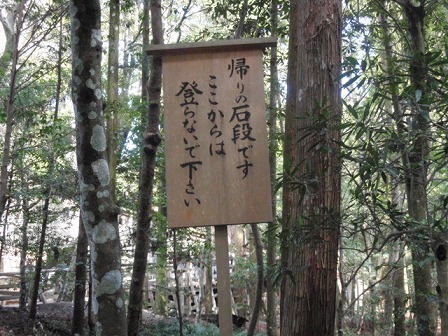 帰りの石段です
ここからは
登らないで下さい